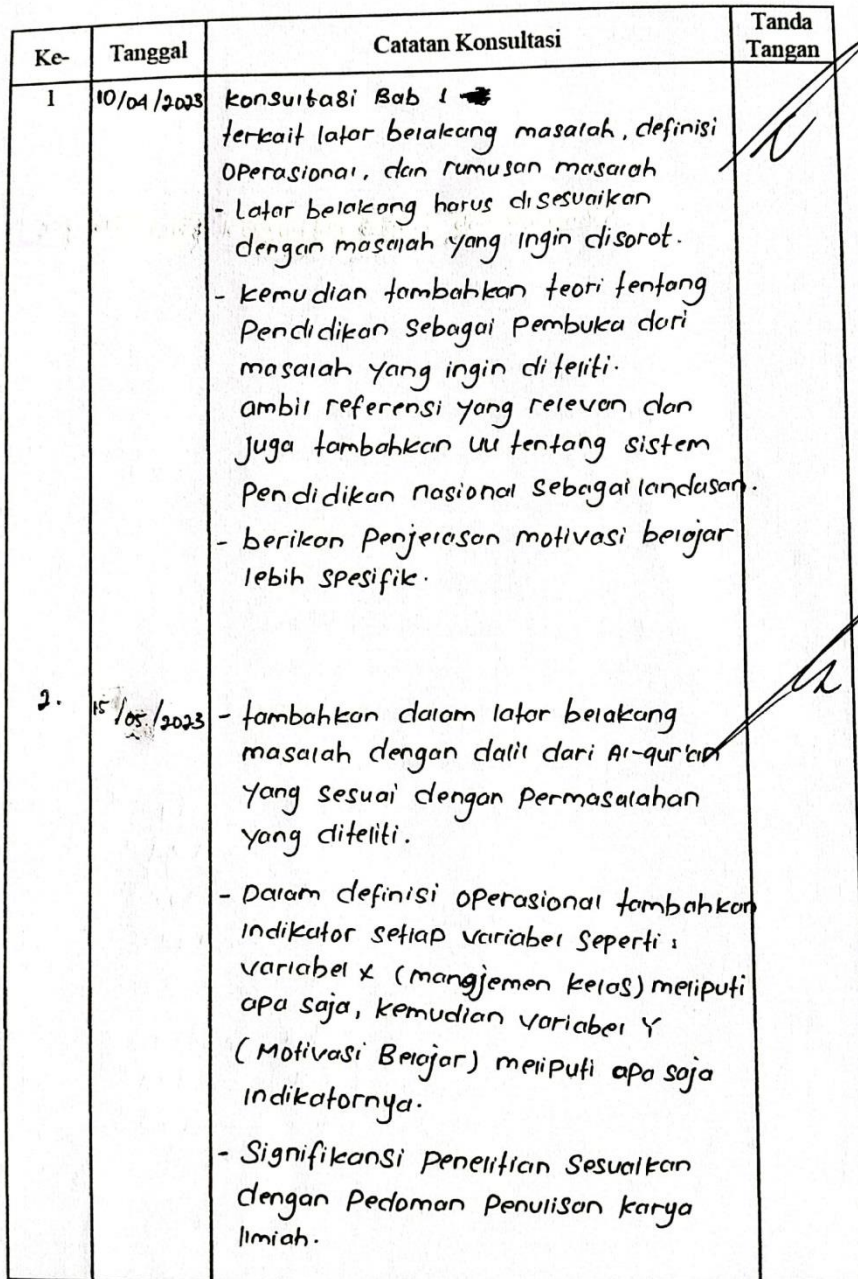 Ke- Tanggal Catatan Konsultasi Tanda Tangan
1 10/04/2023 konsultasi Bab 1
terkait latar belakang masalah, definisi
operasional, dan rumusan masalah
- Latar belakang harus disesuaikan
dengan masalah yang ingin disorot.
- kemudian tambahkan teori tentang
Pendidikan sebagai Pembuka dari
masalah yang ingin diteliti.
ambil referensi yang relevan dan
Juga tambahkan uu tentang sistem
Pendidikan nasional sebagai landasan.
- berikan Penjelasan motivasi belajar
lebih spesifik.
2. 15/05/2023 - tambahkan dalam latar belakang
masalah dengan dalil dari Al-qur'an
yang sesuai dengan Permasalahan
yang diteliti.
- Dalam definisi operasional tambahkan
indikator setiap variabel seperti :
variabel x (manajemen kelas) meliputi
apa saja, kemudian variabel Y
(Motivasi Belajar) meliputi apa saja
indikatornya.
- Signifikansi Penelitian Sesuaikan
dengan Pedoman Penulisan karya
Ilmiah.